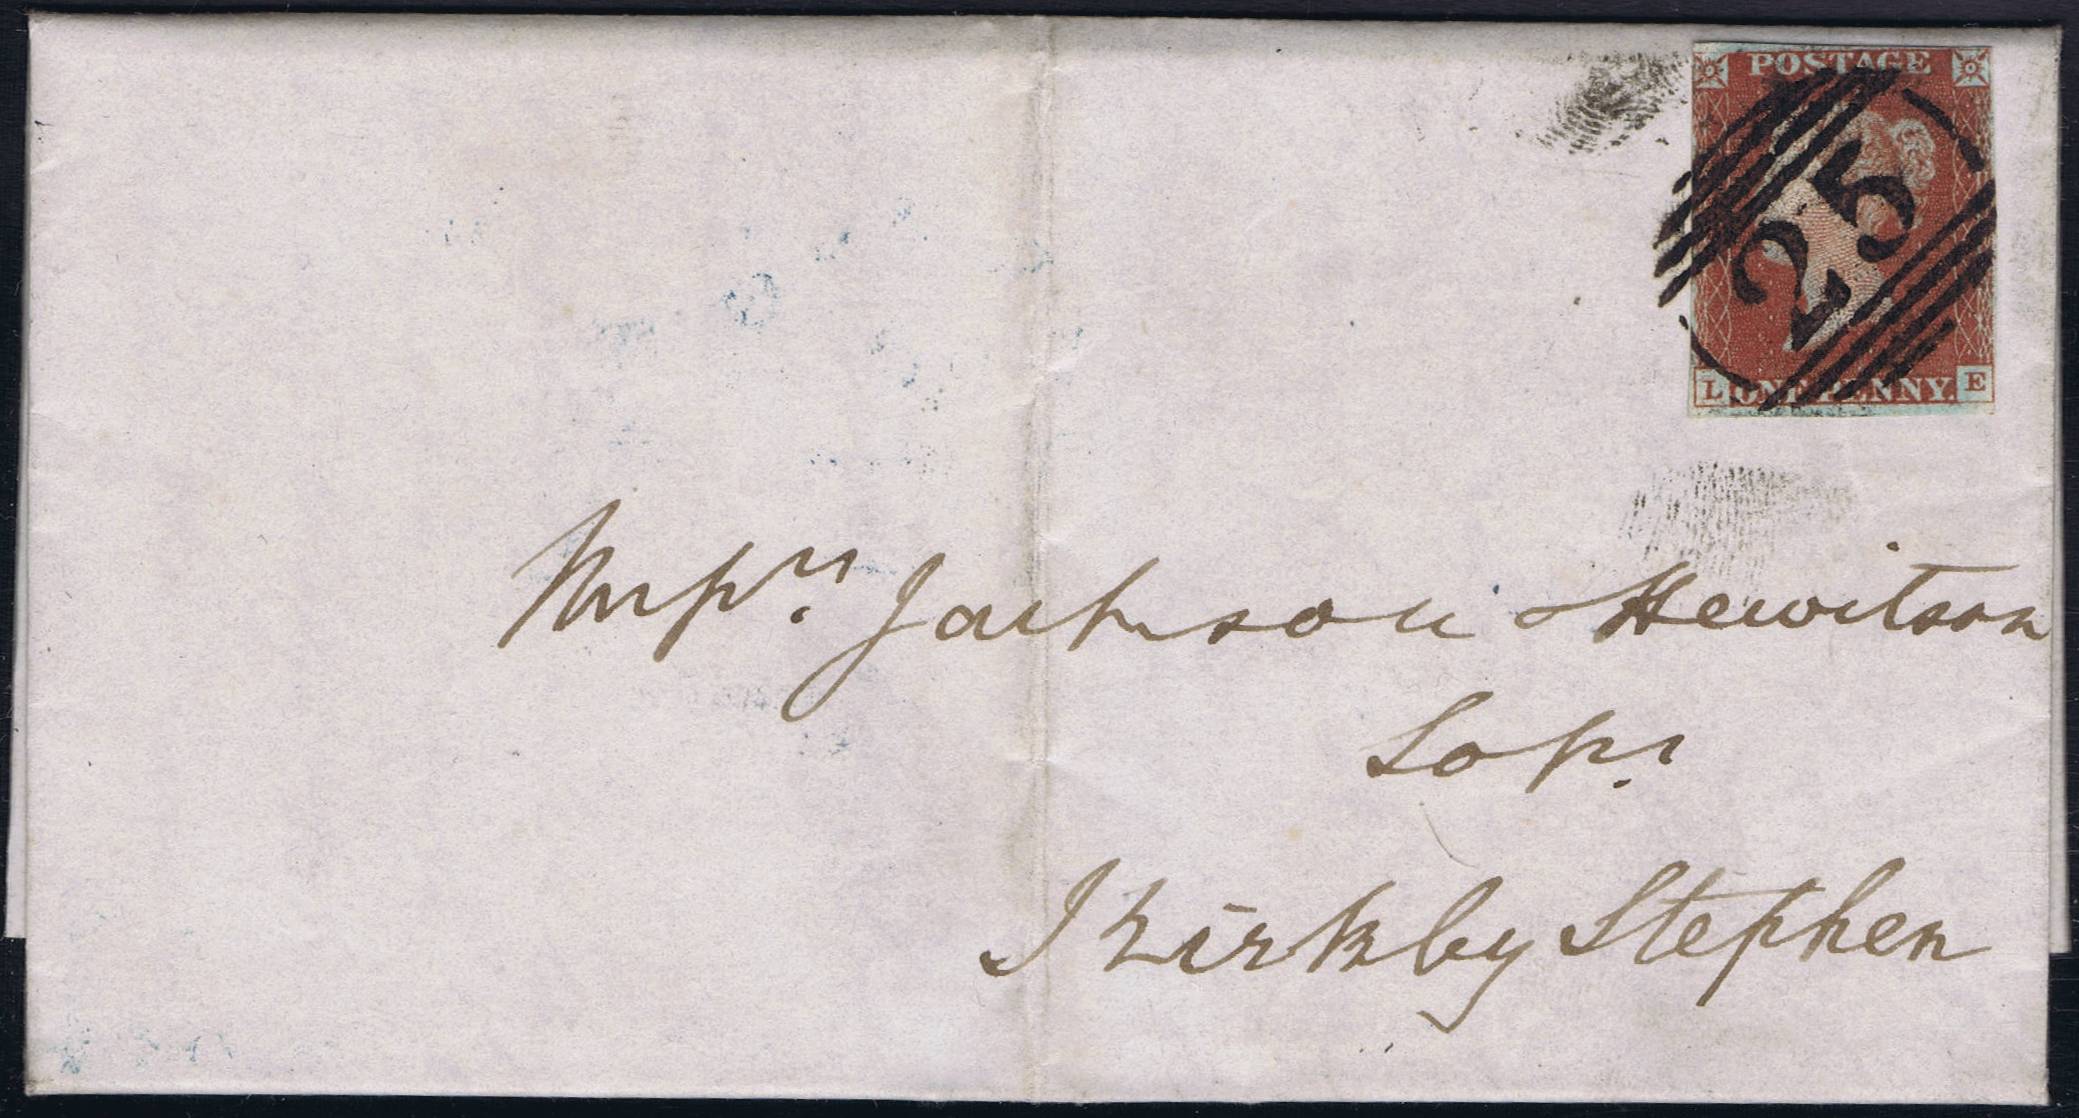 POSTAGE
25
L ONE PENNY. E
Messrs. Jackson & Hewitson
Solrs.
Kirkby Stephen